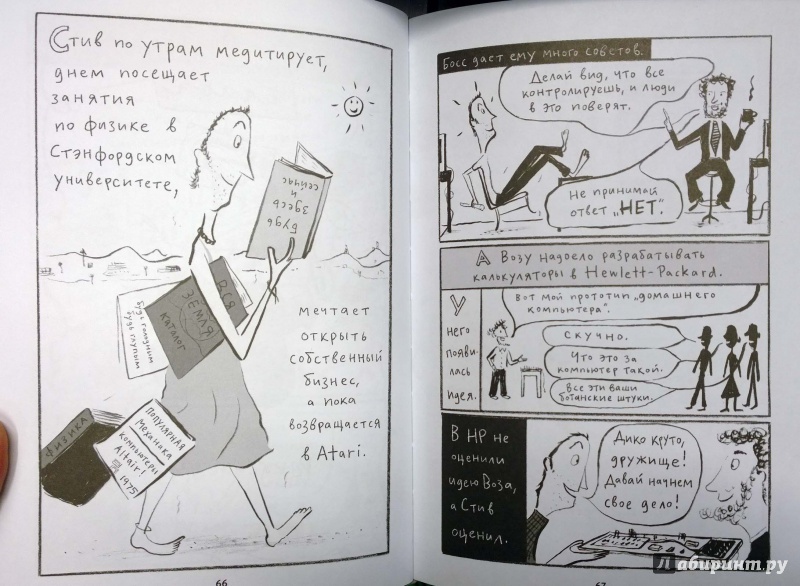 Стив по утрам медитирует,
днем посещает
занятия
по физике в
Стэнфордском
университете,
Будь
здесь
и
сейчас
Вся
Земля
каталог
Будь голодным
будь глупым
мечтает
открыть
собственный
бизнес,
а пока
возвращается
в Atari.
Физика
Популярная
механика
компьютери
Altair!
1975
66
Босс дает ему много советов.
Делай вид, что все
контролируешь, и люди
в это поверят.
Не принимай
ответ „НЕТ".
А Возу надоело разрабатывать
калькуляторы в Hewlett-Packard.
У
него
появи-
лась
идея.
Вот мой прототип „домашнего
компьютера".
Скучно.
Что это за
компьютер такой.
Все эти ваши
ботанские штуки.
В HP не
оценили
идею Воза,
а Стив
оценил.
Дико круто,
дружище!
Давай начнем
свое дело!
67
Лабиринт.ру